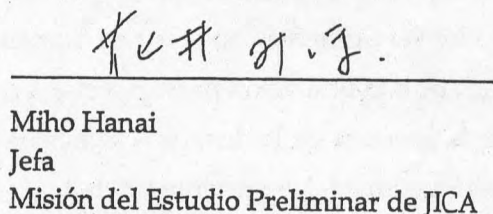 Miho Hanai
Jefa
Misión del Estudio Preliminar de JICA